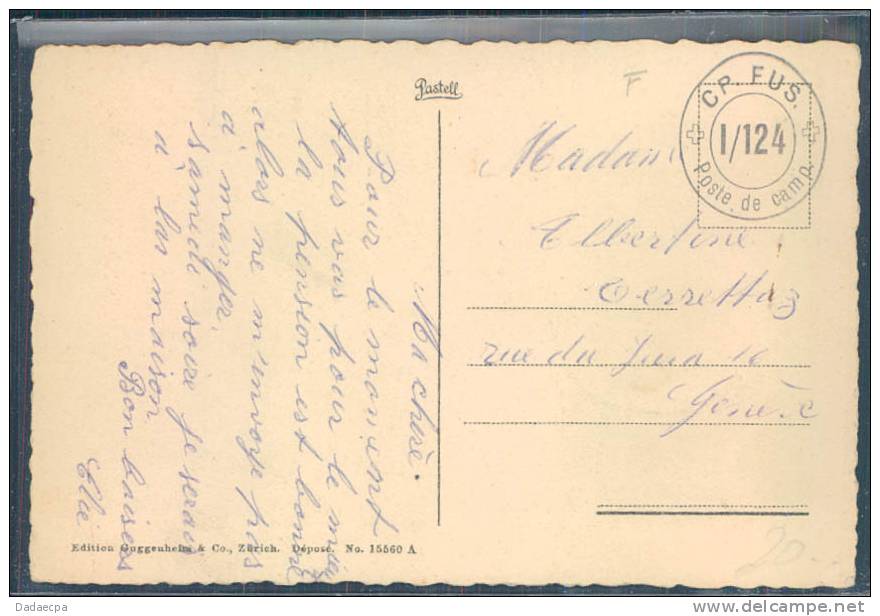 Pastell
F
CP. FUS.
I/124
Poste de camp.
Madame
Elbertine
Terrettaz
rue du Jura 10
Genève
Ma cherè.
Pour le moment
tous vas pour le mieu
la pension est bonne
alors ne m'envoje pas
a manger.
samedi soire je serai
a las maison
Bon baisers
Elie
Edition Guggenheim & Co., Zürich. Déposé. No. 15560 A
20.-
Dadaecpa
www.delcampe.net